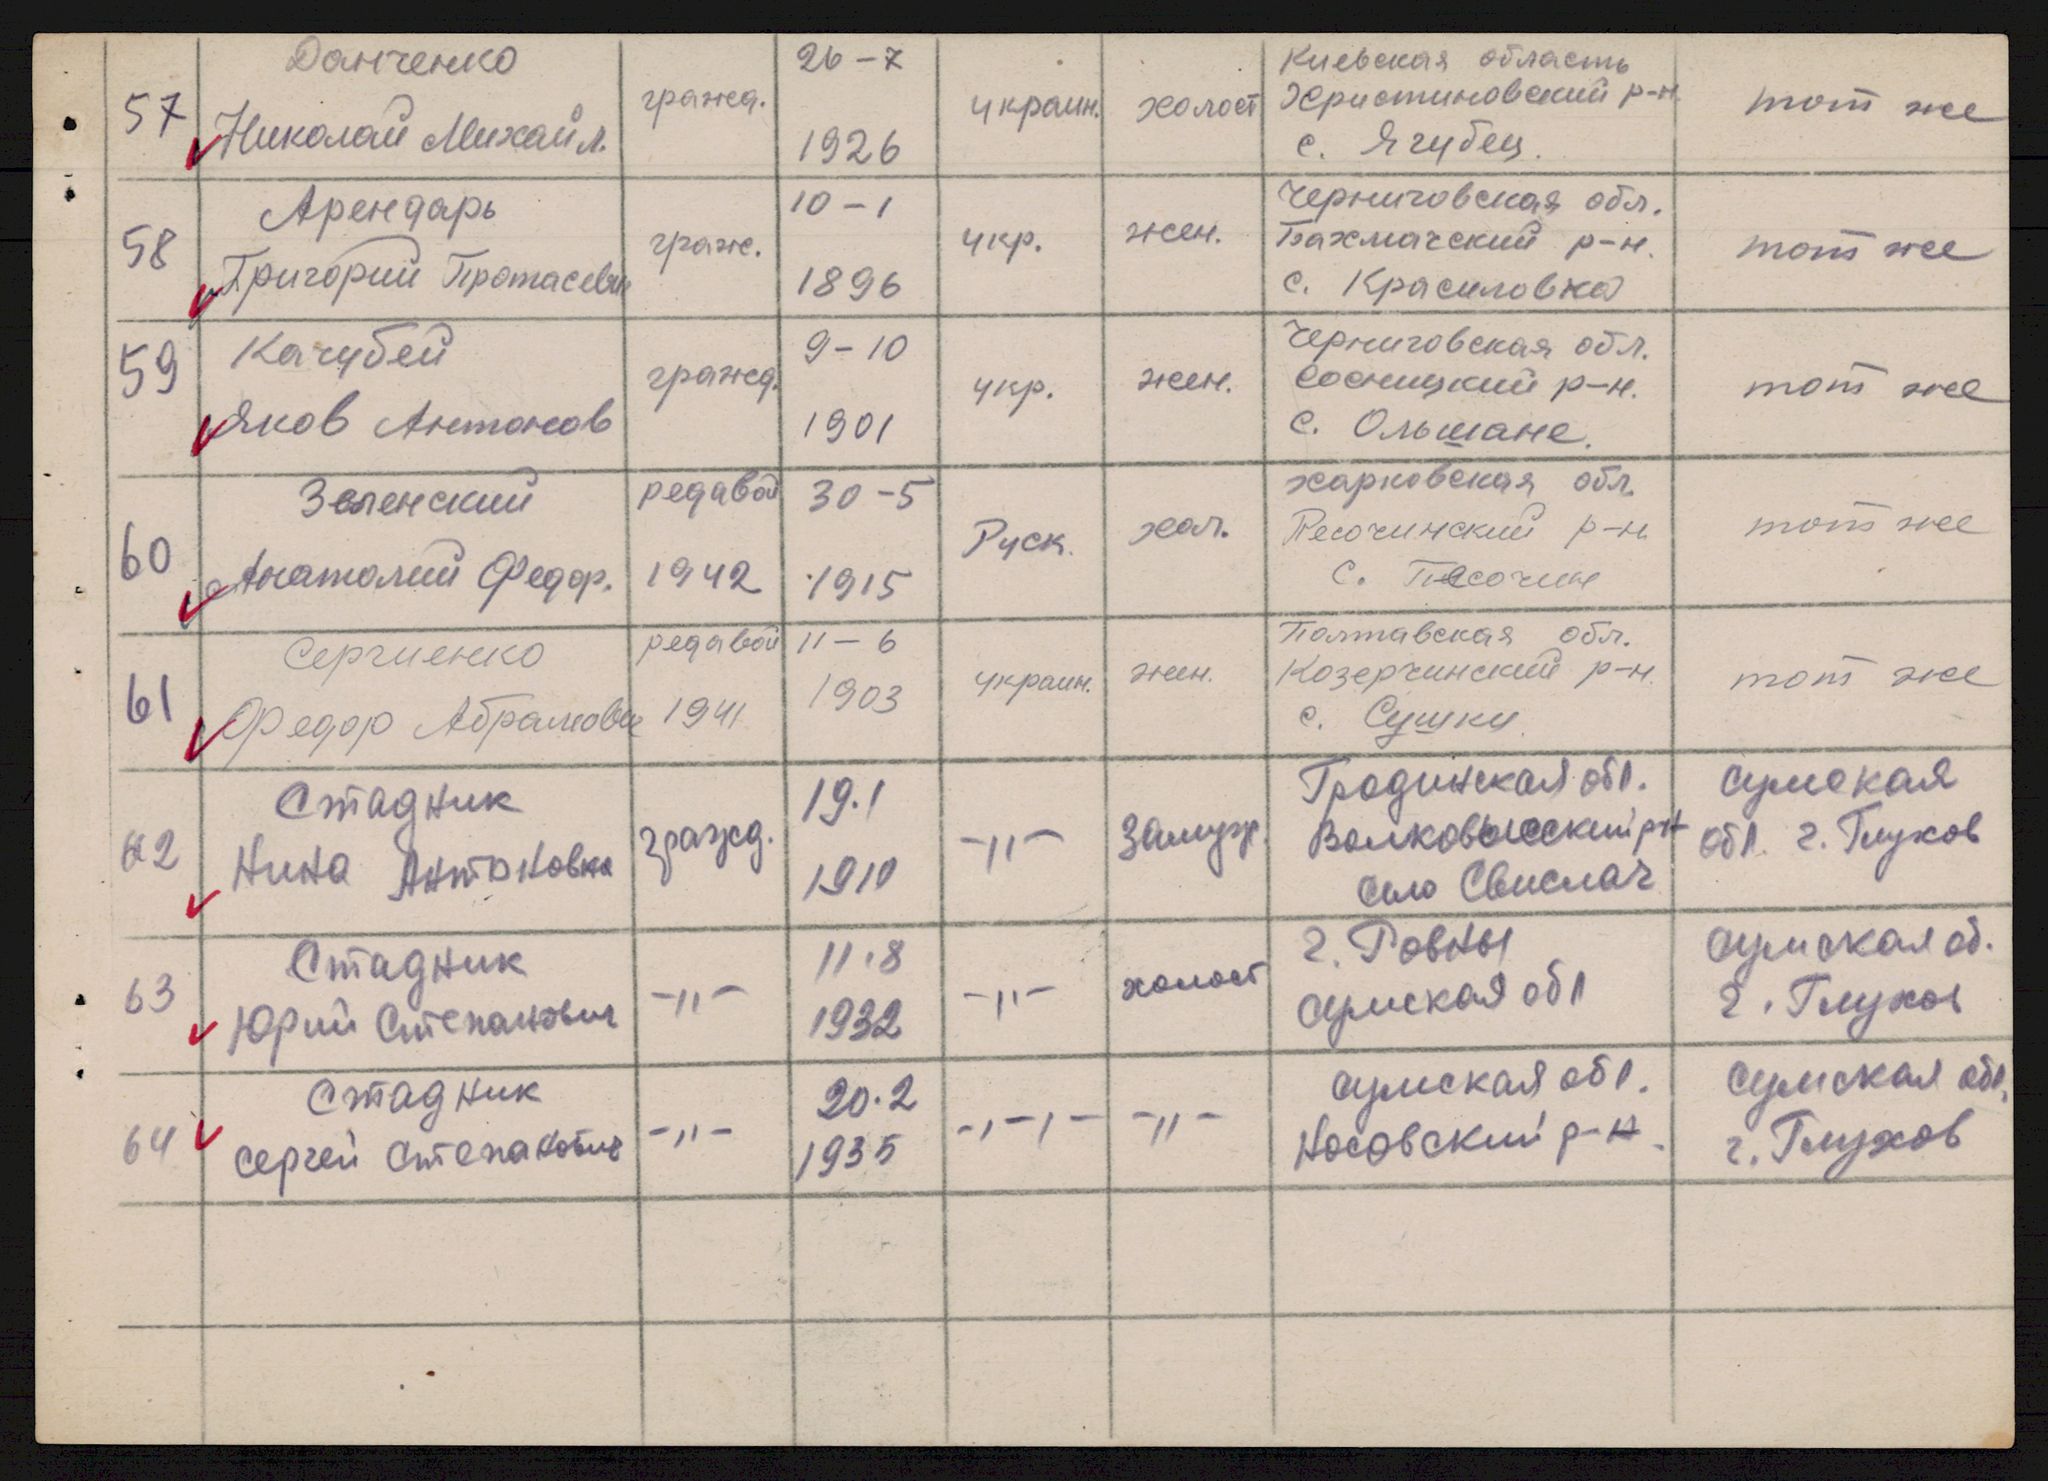 57
Данченко
Николай Михайл.
гражд.
26-7
1926
украин.
холост
Киевская область
Христиновский р-н.
с. Ягубец.
тот же
58
Арендарь
Григорий Протасевич
граж.
10-1
1896
укр.
жен.
Черниговская обл.
Бахмачский р-н.
с. Красиловка
тот же
59
Качубей
Яков Антонов
гражд.
9-10
1901
укр.
жен.
Черниговская обл.
Сосницкий р-н.
с. Ольшане.
тот же
60
Зеленский
Анатолий Федор.
редавой
1942
30-5
1915
Руск.
хол.
Харковская обл.
Песочинский р-н
с. Песочин
тот же
61
Сергиенко
Федор Абрамович
редавой
1941
11-6
1903
украин.
жен.
Полтавская обл.
Козерчинский р-н.
с. Сушки.
тот же
62
Стадник
Нина Антоновна
гражд.
19.1
1910
-"-
Замуж.
Градинская обл.
Волковысский р-н
село Свислач
Сумская
обл. г. Глухов
63
Стадник
Юрий Степанович
-"-
11.8
1932
-"-
холост
г. Ровны
Сумская обл
Сумская об.
г. Глухов
64
Стадник
Сергей Степанович
-"-
20.2
1935
-'-'-
-"-
Сумская обл.
Носовский р-н.
Сумская обл.
г. Глухов